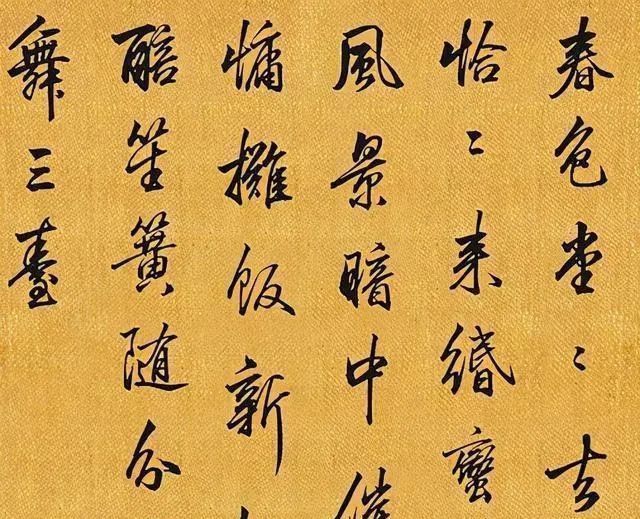 春色堂〻去
恰〻来緡蠻
風景暗中催
慵攤飯新
醅笙簧随分
舞三臺